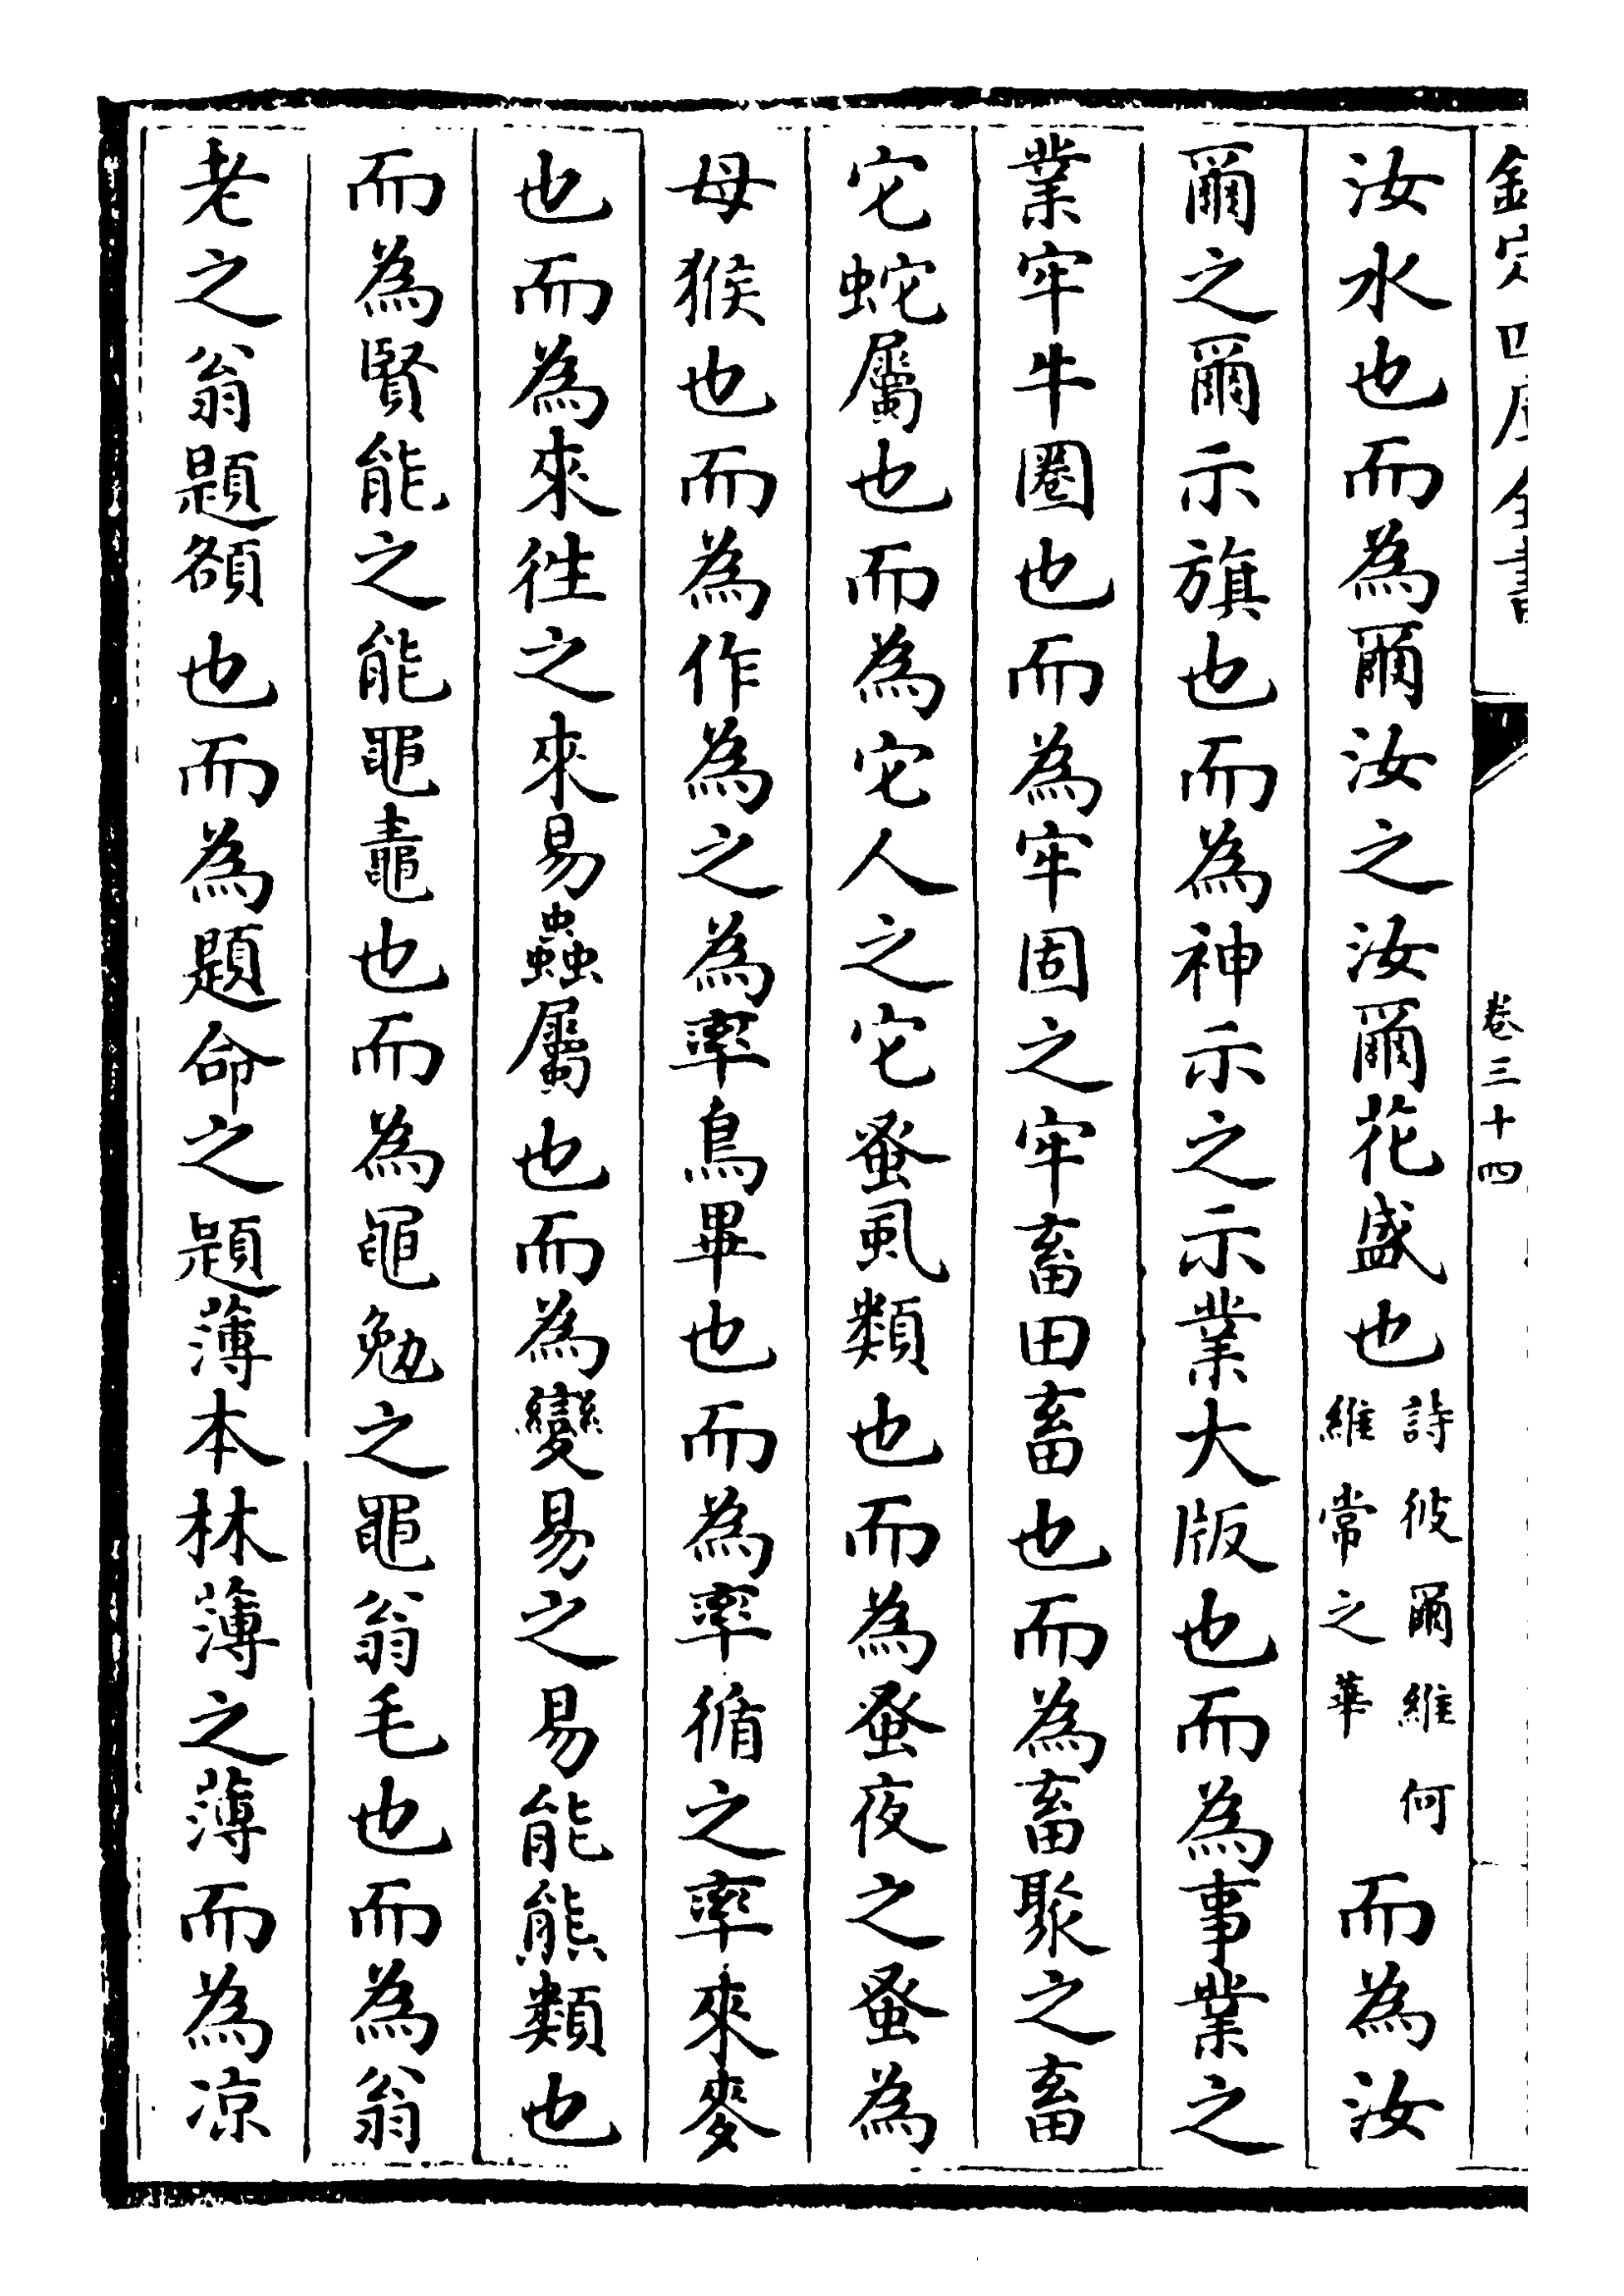 欽定四庫全書 卷三十四
汝水也而為爾汝之汝爾花盛也詩彼爾維何維常之華而為汝
爾之爾示旗也而為神示之示業大版也而為事業之
業牢牛圈也而為牢固之牢畜田畜也而為畜聚之畜
它蛇屬也而為它人之它蚤虱類也而為蚤夜之蚤為
母猴也而為作為之為率鳥畢也而為率循之率來麥
也而為來徃之來易蟲屬也而為變易之易能熊類也
而為賢能之能黽鼃也而為黽勉之黽翁毛也而為翁
老之翁題頟也而為題命之題薄本林薄之薄而為凉